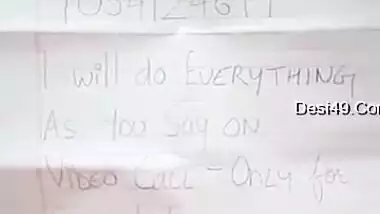 I will do EVERYTHING
As You Say ON
VIDEO CALL - ONLY for
Desi49.Co